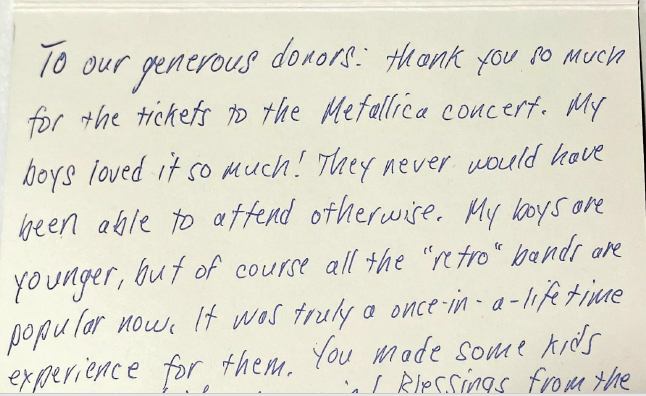 To our generous donors: thank you so much
for the tickets to the Metallica concert. My
boys loved it so much! They never would have
been able to attend otherwise. My boys are
younger, but of course all the "retro" bands are
popular now. It was truly a once-in-a-lifetime
experience for them. You made some kids
Blessings from the